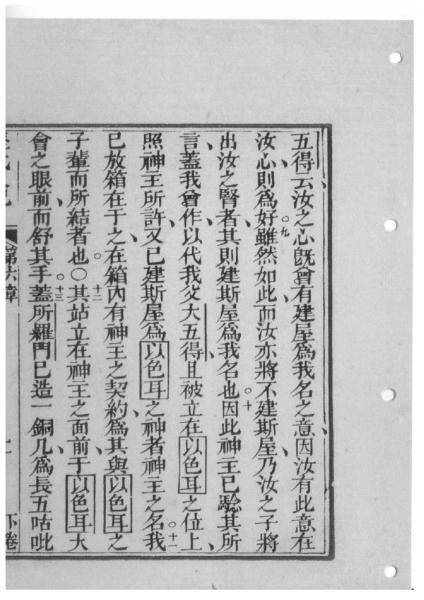 五得云汝之心旣曾有建屋爲我名之意因汝有此意在
汝心則爲好○九雖然如此而汝亦將不建斯屋乃汝之子將
出汝之腎者其則建斯屋爲我名也○十因此神王已騐其所
言蓋我曾作以代我父大五得且被立在以色耳之位上
照神王所許又已建斯屋爲以色耳之神者神王之名我○十一
已放箱在于之在箱內有神王之契約爲其與以色耳之
子輩而所結者也○十二○其站立在神王之面前于以色耳大
會之眼前而舒其手○十三蓋所羅門已造一銅几爲長五咕吡
第六章
下卷